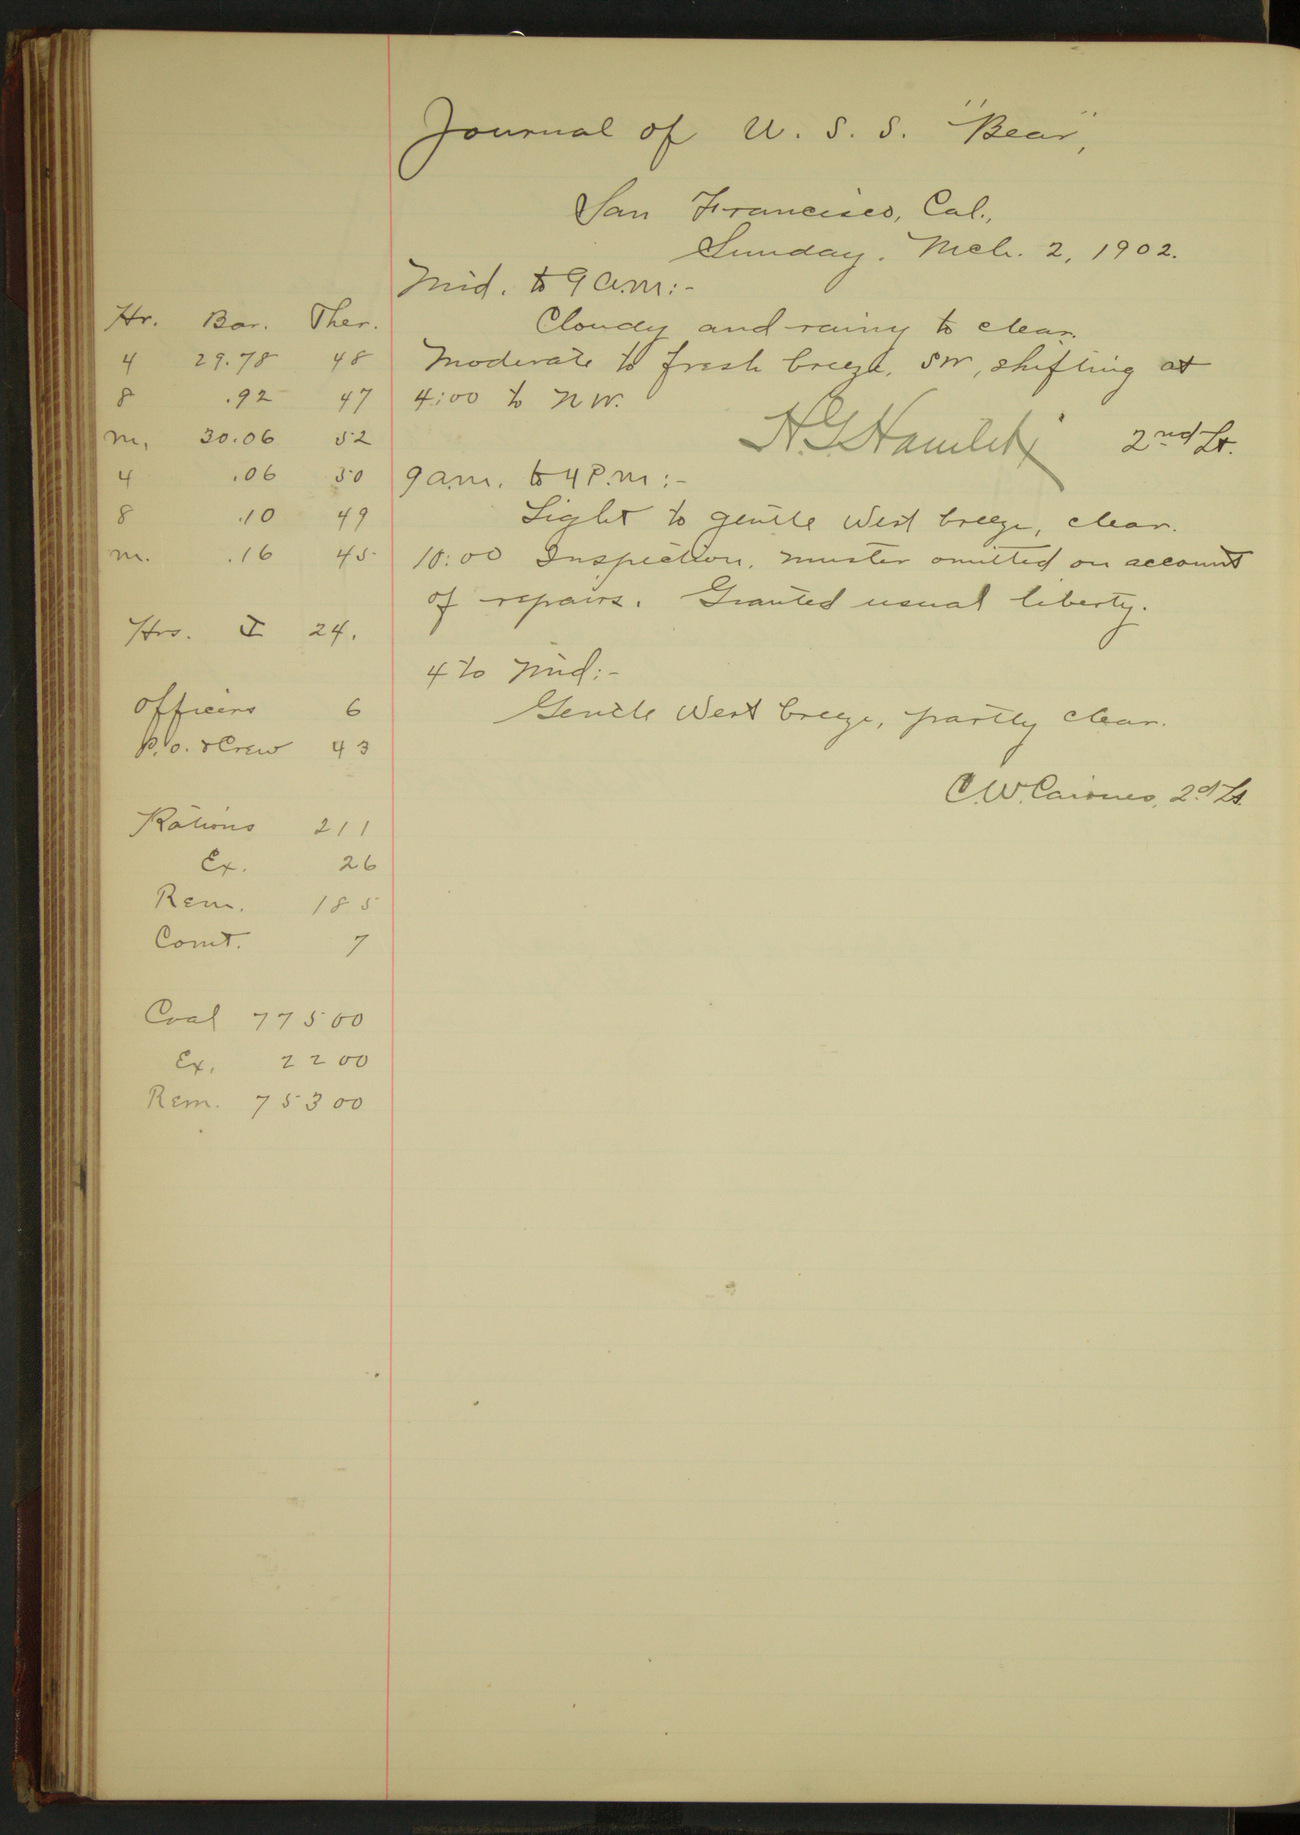 Journal of U. S. S. "Bear",
San Francisco, Cal.,
Sunday. Mch. 2, 1902.
Mid. to 9 a.m:-
Cloudy and rainy to clear.
Moderate to fresh breeze, SW, shifting at
4:00 to NW.
H.G. Hamlet 2nd Lt.
9 a.m. to 4 P.m:-
Light to gentle West breeze, clear.
10:00 Inspection, muster omitted on account
of repairs. Granted usual liberty.
4 to Mid:-
Gentle West breeze, partly clear.
C.W. Cairnes, 2d Lt.
Hr. Bar. Ther.
4 29.78 48
8 .92 47
m. 30.06 52
4 .06 50
8 .10 49
m. .16 45
Hrs. I 24.
Officers 6
P.O. & Crew 43
Rations 211
Ex. 26
Rem. 185
Comt. 7
Coal 77500
Ex. 2200
Rem. 75300